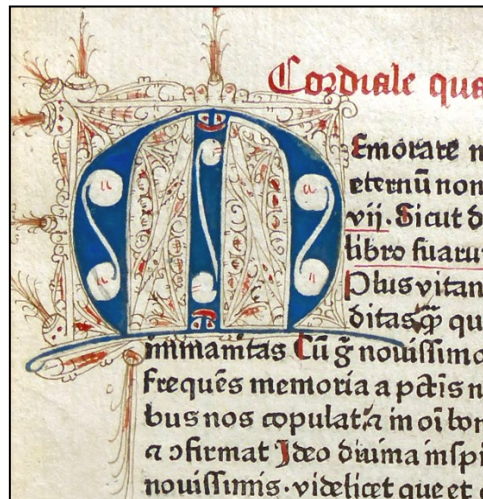 Cordiale qua
Memorare n
eternū non
vij. Sicut d
libro suaru
Plus vitan
ditas qꝫ qu
immanitas Cū g̃ nouissimo
frequēs memoria a pctīs n
bus nos copulat ⁊ in oī bon
⁊ ꝯfirmat Ideo diuina inspi
nouissimis. videlicet que et